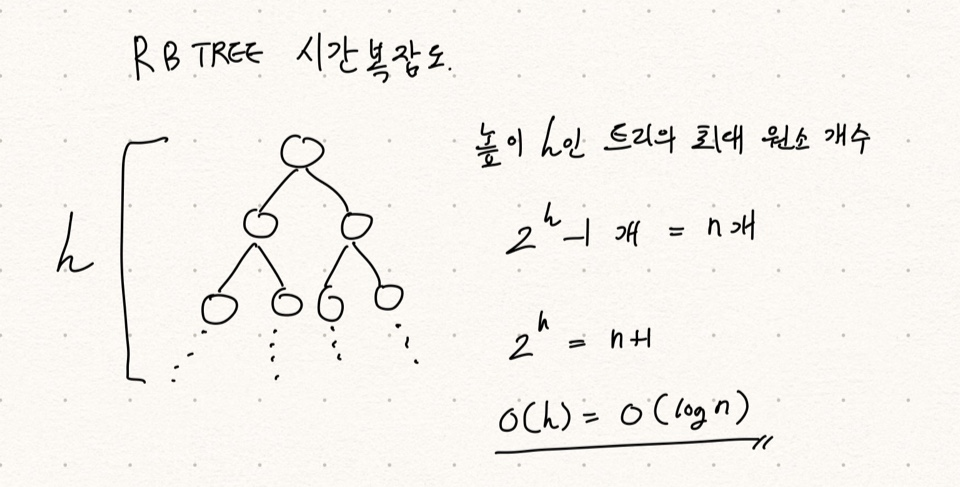 RB TREE 시간복잡도.
높이 h인 트리의 최대 원소 개수
h
2^h-1 개 = n개
2^h = n+1
O(h) = O(log n)